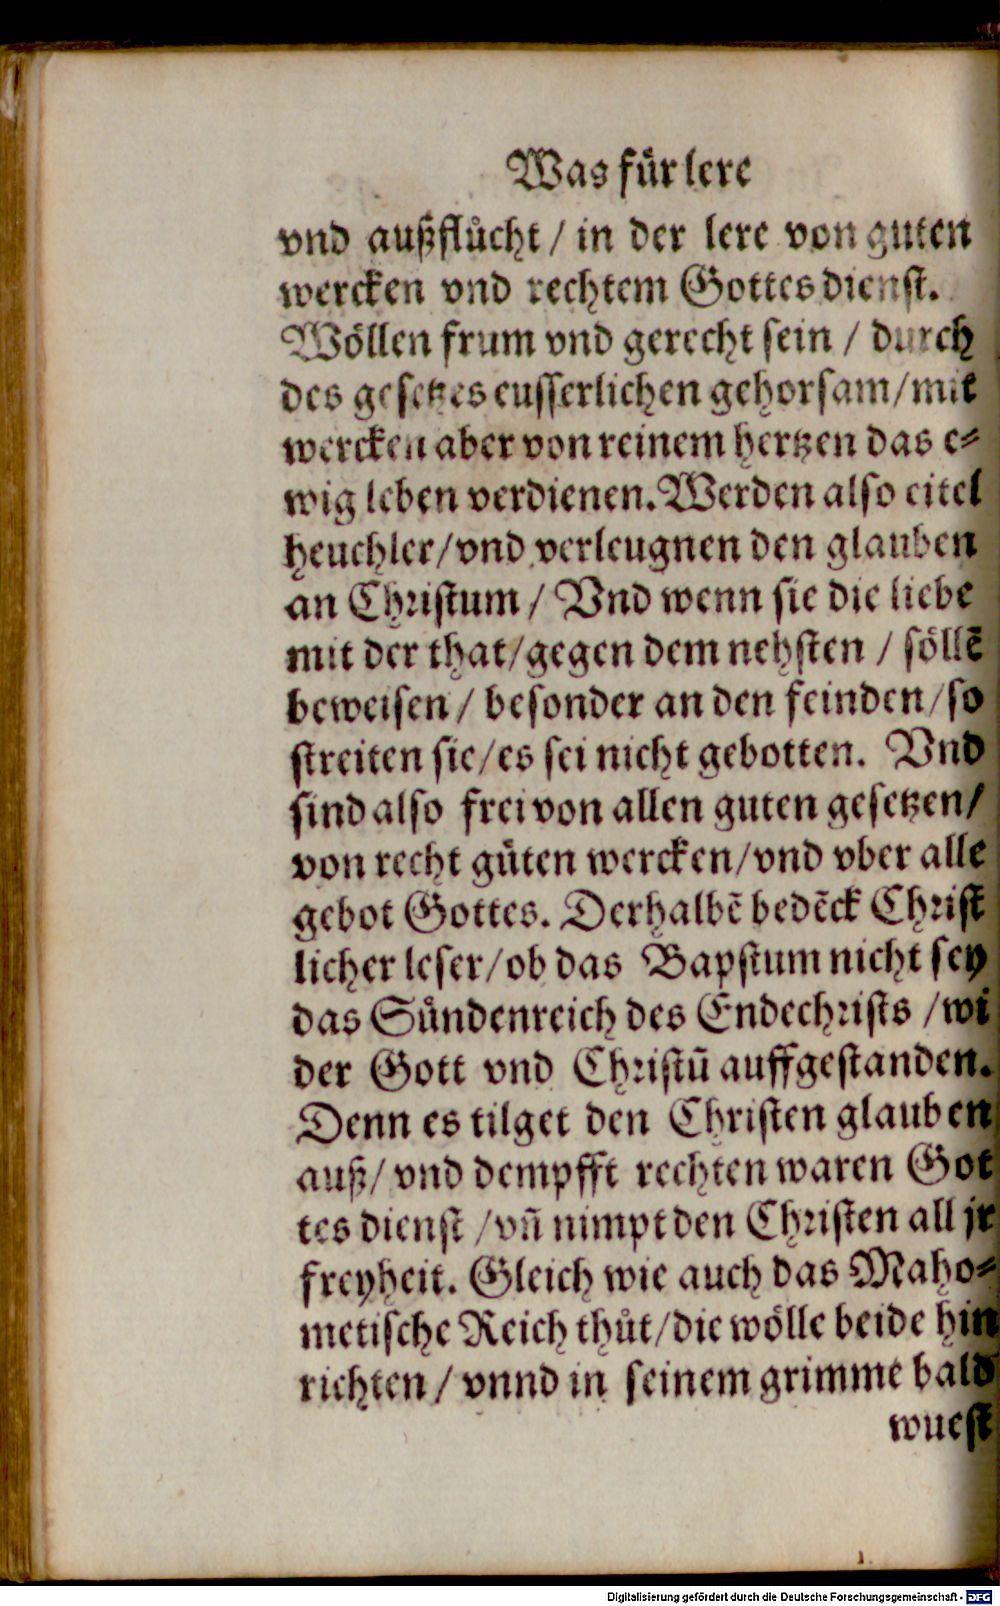 Was für lere
vnd außflücht / in der lere von guten
wercken vnd rechtem Gottes dienst.
Wöllen frum vnd gerecht sein / durch
des gesetzes eusserlichen gehorsam/mit
wercken aber von reinem hertzen das e⸗
wig leben verdienen. Werden also eitel
heuchler/vnd verleugnen den glauben
an Christum / Vnd wenn sie die liebe
mit der that/gegen dem nehsten / söllẽ
beweisen / besonder an den feinden/so
streiten sie/es sei nicht gebotten. Vnd
sind also frei von allen guten gesetzen/
von recht gůten wercken/vnd vber alle
gebot Gottes. Derhalbẽ bedẽck Christ
licher leser/ob das Bapstum nicht sey
das Sündenreich des Endechrists /wi
der Gott vnd Christũ auffgestanden.
Denn es tilget den Christen glauben
auß/ vnd dempfft rechten waren Got
tes dienst /vñ nimpt den Christen all jr
freyheit. Gleich wie auch das Maho⸗
metische Reich thůt/die wölle beide hin
richten / vnnd in seinem grimme bald
wuest
Digitalisierung gefördert durch die Deutsche Forschungsgemeinschaft - DFG